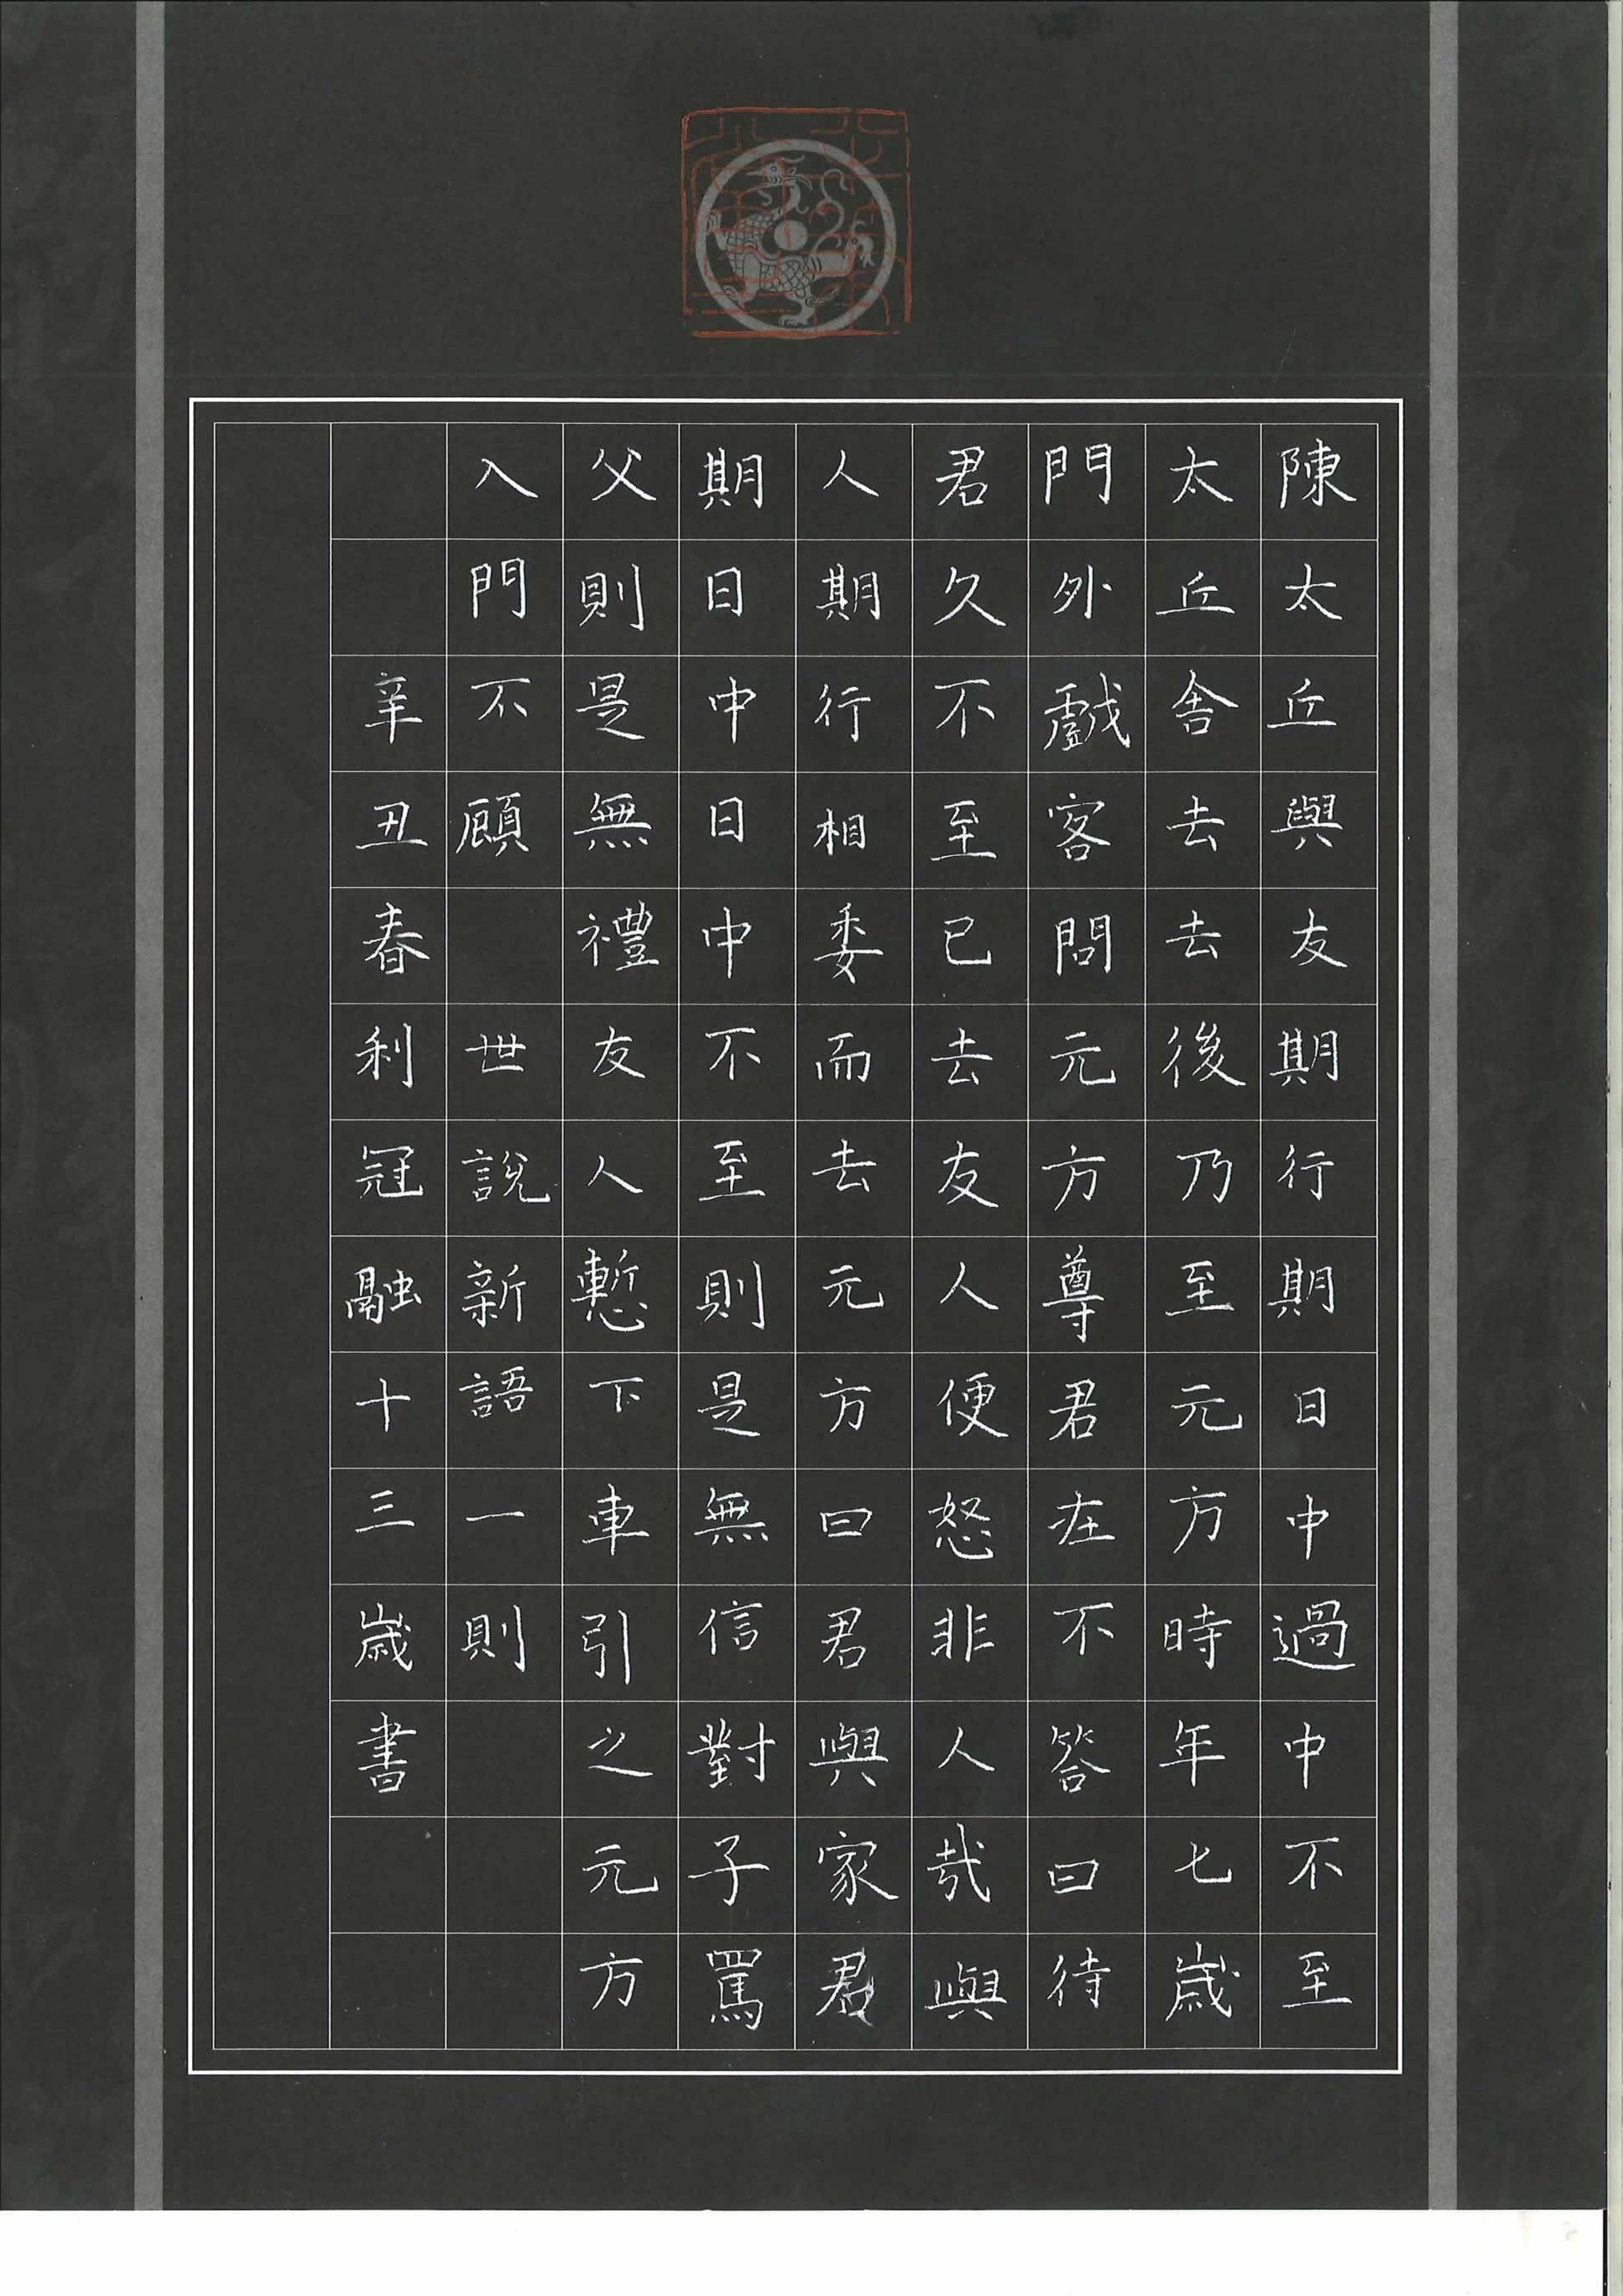 陳太丘與友期行期日中過中不至
太丘舍去去後乃至元方時年七歲
門外戲客問元方尊君在不答曰待
君久不至已去友人便怒非人哉與
人期行相委而去元方曰君與家君
期日中日中不至則是無信對子罵
父則是無禮友人慙下車引之元方
入門不顧 世說新語一則
辛丑春利冠融十三歲書